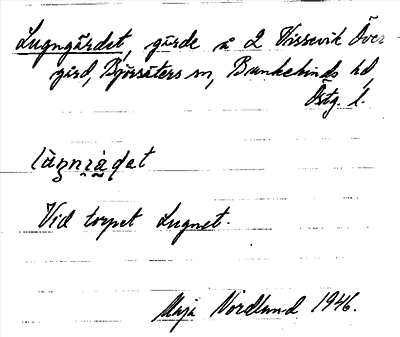 Lugngärdet, gärde å 2 Vissevik Över
gård, Björsäters sn, Bankekinds hd
Östg. l.
Vid torpet Lugnet.
Maja Nordlund 1946.